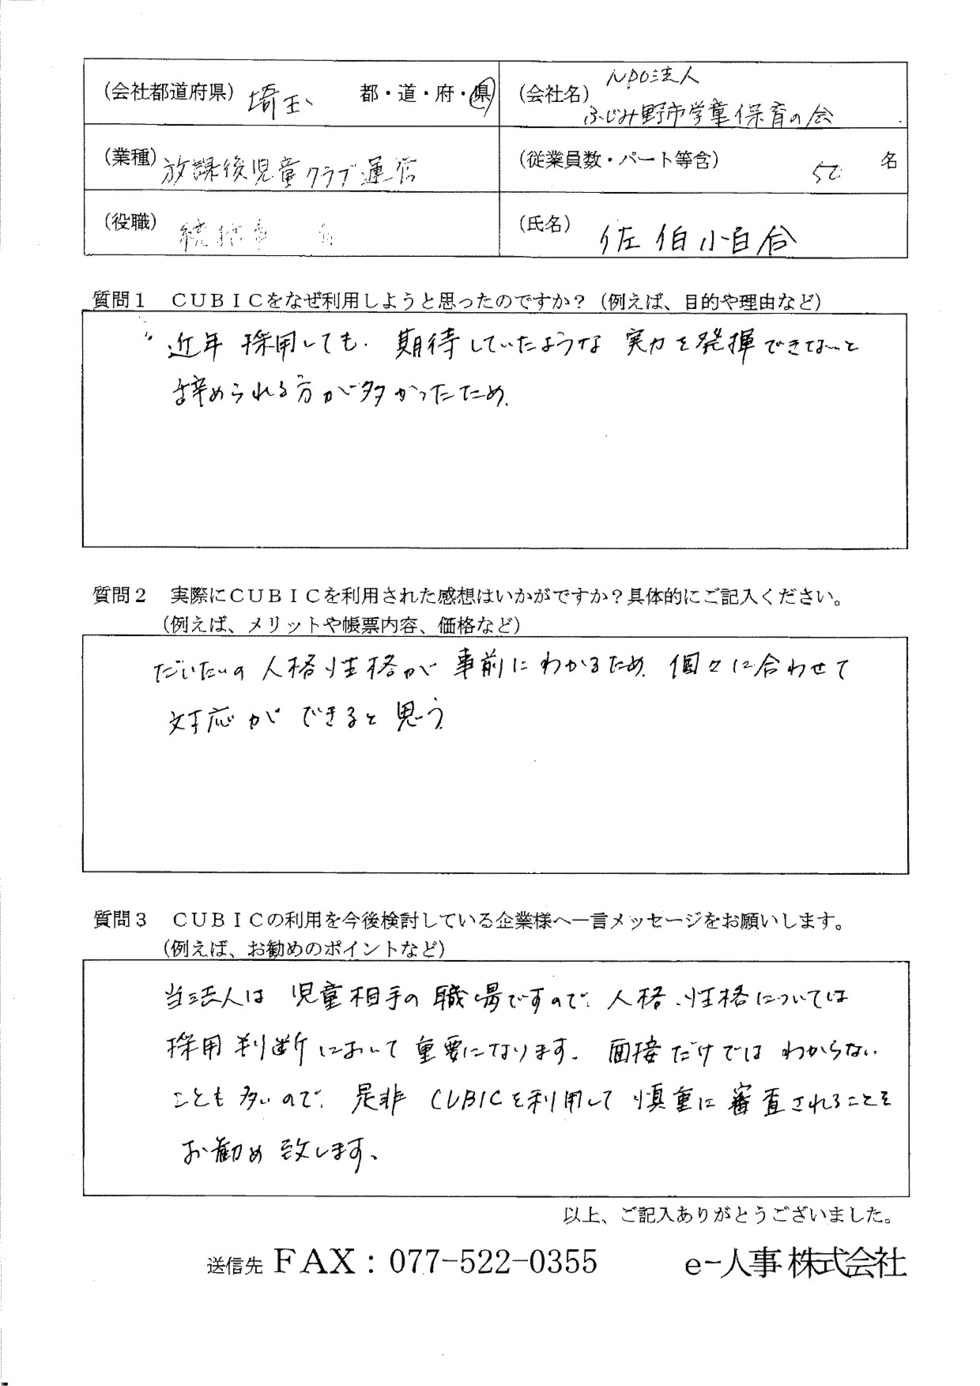 (会社都道府県) 埼玉 都・道・府・県
(会社名) NPO法人
ふじみ野市学童保育の会
(業種) 放課後児童クラブ運営
(従業員数・パート等含) 50 名
(役職)
(氏名) 佐伯小百合
質問1 CUBICをなぜ利用しようと思ったのですか?(例えば、目的や理由など)
近年 採用しても、期待していたような 実力を発揮できないと
辞められる方が多かったため。
質問2 実際にCUBICを利用された感想はいかがですか?具体的にご記入ください。
(例えば、メリットや帳票内容、価格など)
だいたいの 人格、性格が 事前にわかるため、個々に合わせて
対応ができると思う。
質問3 CUBICの利用を今後検討している企業様へ一言メッセージをお願いします。
(例えば、お勧めのポイントなど)
当法人は 児童相手の職場ですので、人格、性格については
採用判断において重要になります。面接だけでは わからない
ことも多いので、是非 CUBICを利用して慎重に審査されることを
お勧め致します。
以上、ご記入ありがとうございました。
送信先 FAX：077-522-0355 e-人事株式会社